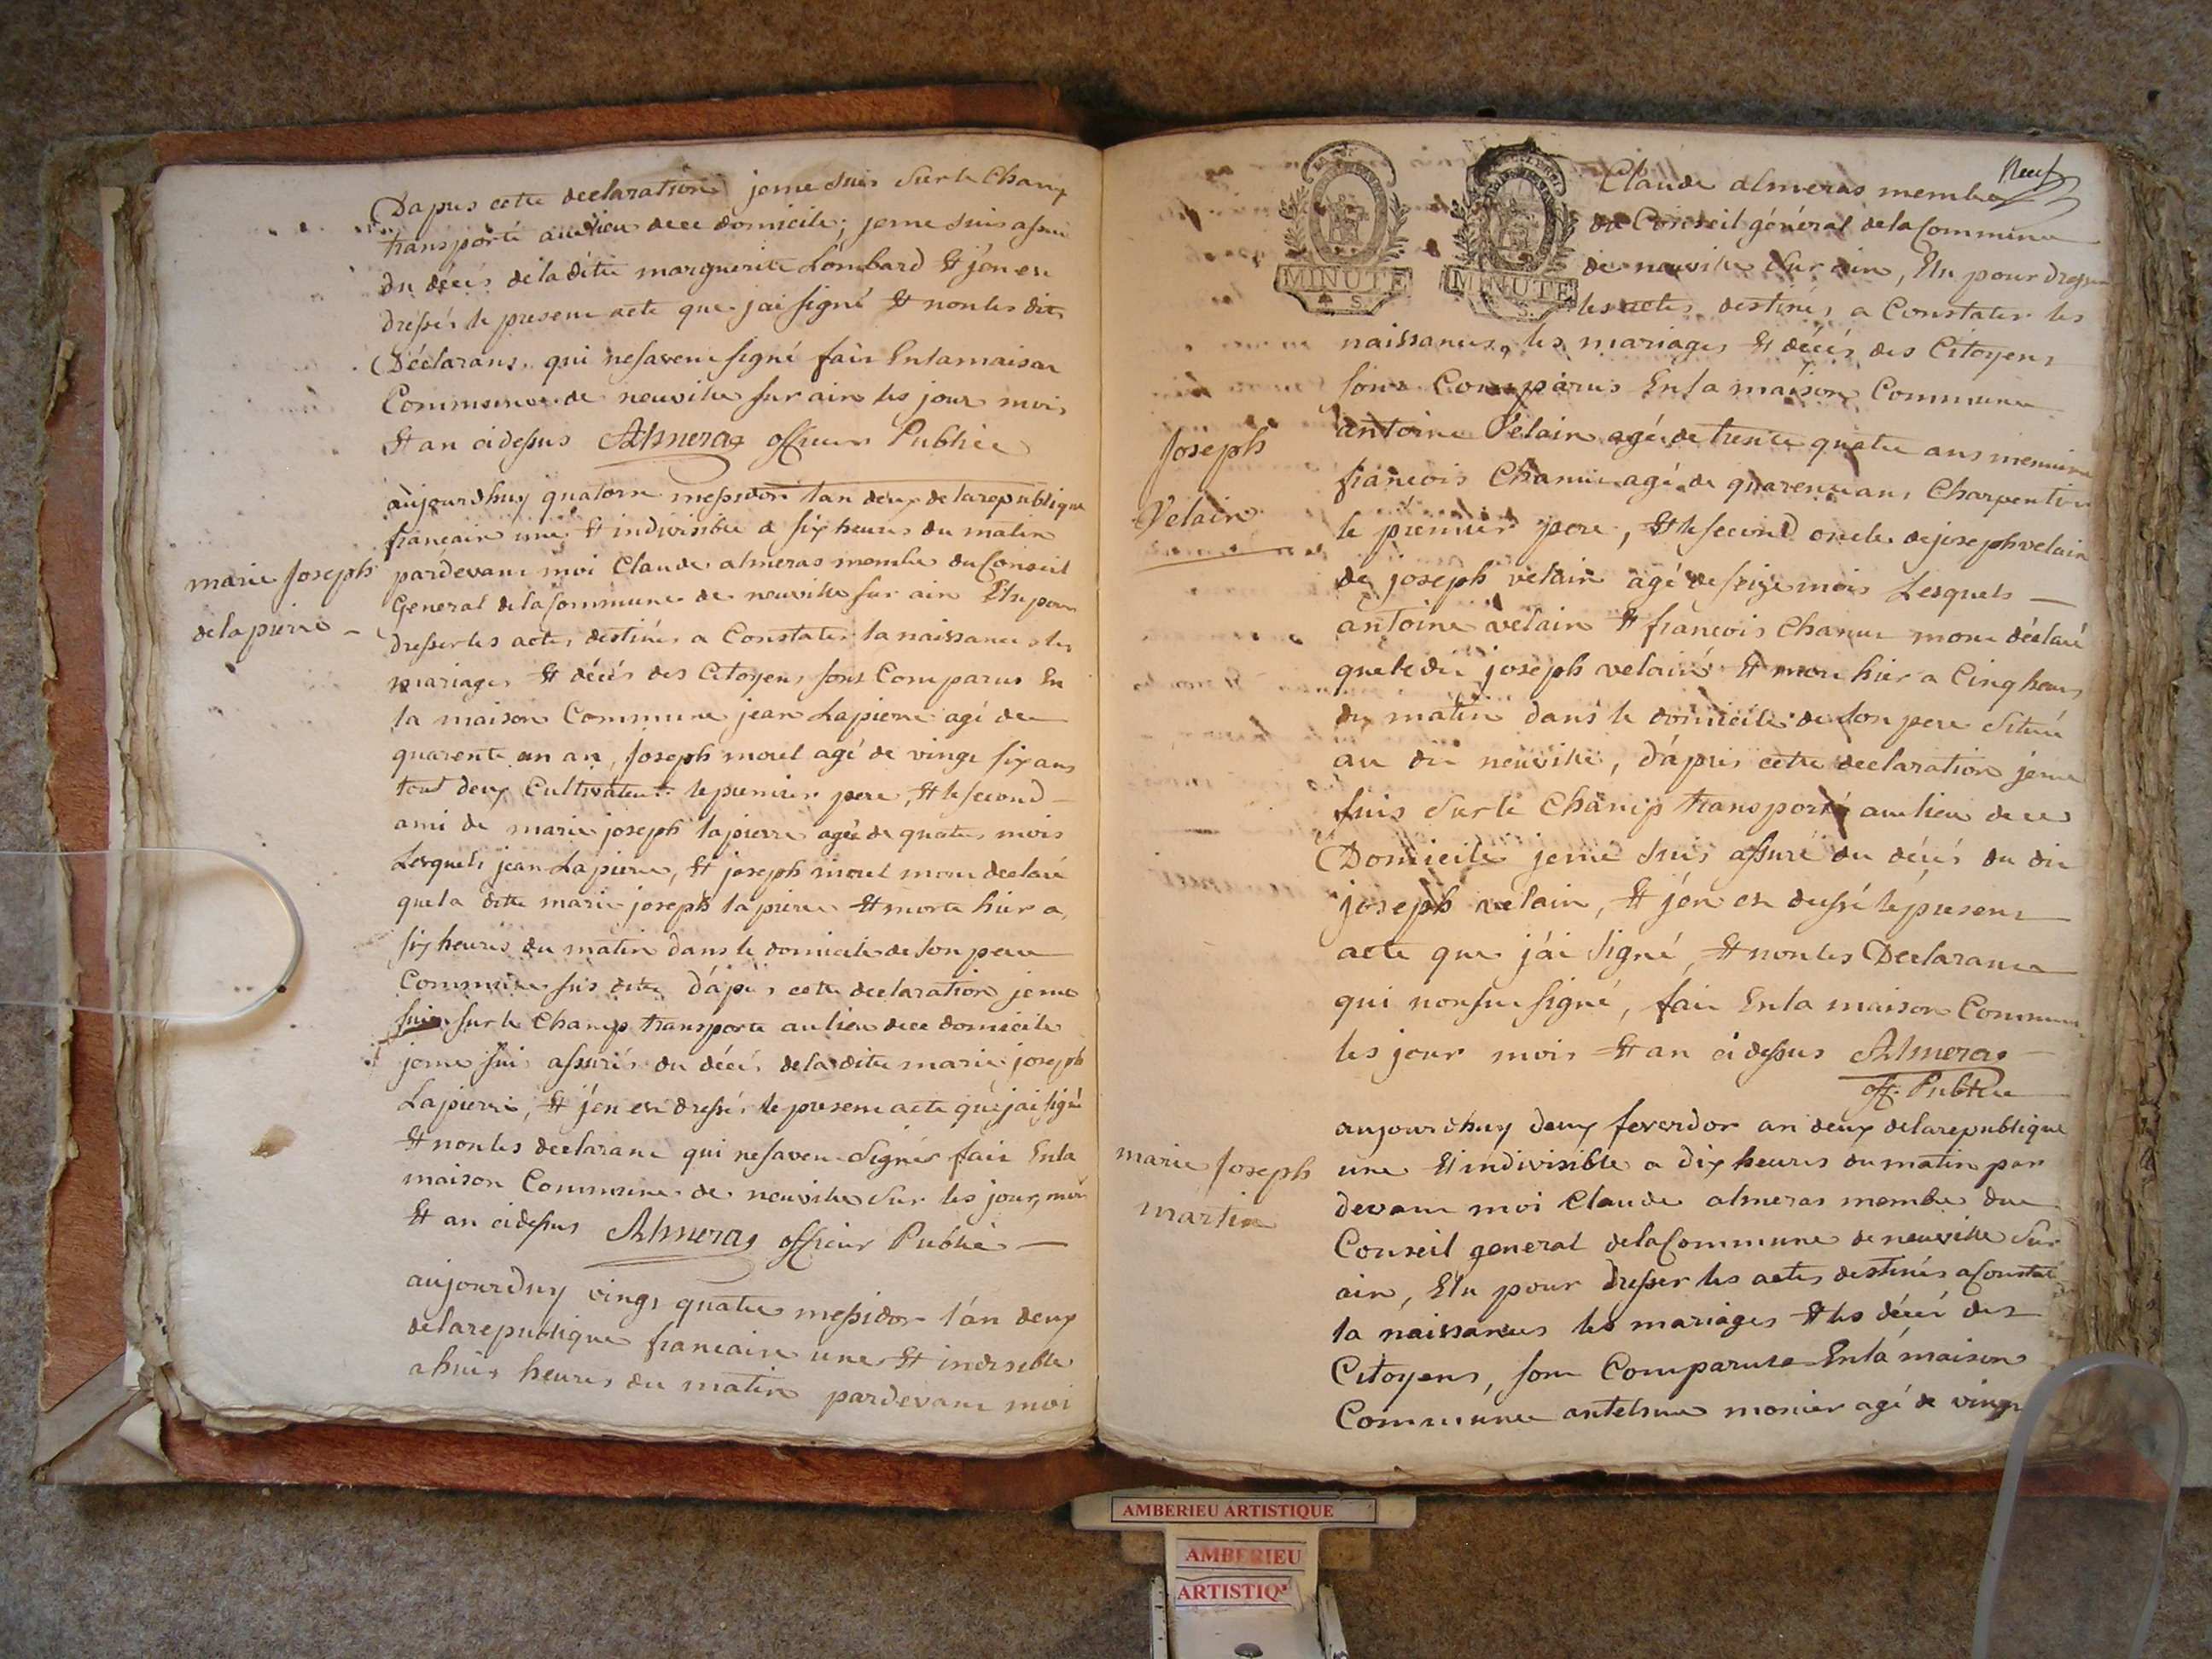 Dapres cette declaration jeme suis sur le champ
transporté au lieu dece domicile, jeme suis assuré
du décés deladitte marguerite Lombard Et j'en en
dressés le present acte que jai signé Et non les dits
Déclarans, qui nesavent signé fait En la maison
Commune de neuville sur ain les jour mois
Et an cidessus Almeras officier Public
marie Joseph
delapierre
aujourdhuy quatorze messidor lan deux delarepublique
francaise une Et indivisible a six heures du matin
pardevant moi Claude almeras membre du Conseil
General delaCommune de neuville sur ain Elu pour
dresser les actes destinés a Constater la naissances les
mariages Et décés des Citoyens sont Comparus En
la maison Commune jean Lapierre agé de
quarente un an, Joseph morel agé de vingt six ans
tout deux Cultivateur le premier pere, Et le second
ami de marie joseph lapierre agée de quatre mois
Lesquels jean Lapierre, Et joseph morel mont declaré
quela ditte marie joseph lapierre Et morte hier a
six heures du matin dans le domicile de son pere
Commune sus ditte d'après cette declaration jeme
suis sur le Champ transporte au lieu dece domicile
jeme suis assurés du décés deladitte marie joseph
Lapierre, Et j'en en dressés le present acte que jai signé
Et non les declarant qui nesavent Signés fait En la
maison Commune de neuville Sur les jour, mois
Et an cidessus Almeras officier Public
aujourduy vingt quatre messidor l'an deux
delarepublique francaise une Et indisible
ahuit heures du matin pardevant moi
Neuf
MINUTE
S.
MINUTE
S.
Claude almeras membre
du Conseil général delaCommune
de neuville sur ain, Elu pour dresser
les actes destinés a Constater les
naissances, les mariages Et décés des Citoyens
sont Comparus En la maison Commune
Joseph
Velain
antoine Velain agé de trente quatre ans
françois Chanu agé de quarente ans Charpentier
le premier pere, Et le second oncle de joseph velain
de joseph velain agé de seize mois Lesquels
antoine velain Et francois Chanu mont déclaré
que ledit joseph velain Et mort hier a Cinq heures
du matin dans le domicile de son pere Situé
au dit neuville, d'après cette declaration jeme
suis sur le Champ transporté au lieu de ce
Domicile jeme suis assuré du décés du dit
joseph velain, Et j'en en dressé le present
acte que j'ai Signé, Et non les Declarant
qui nonsu signé, fait En la maison Commune
les jour mois Et an cidessus Almeras
off. Public
marie Joseph
martin
aujourdhuy deux feverdor an deux delarepublique
une Et indivisible a dix heures du matin par
devant moi Claude almeras membre du
Conseil general delaCommune de neuville Sur
ain, Elu pour dresser les actes destinés a Constaté
la naissances les mariages Et les décés des
Citoyens, sont Comparuts En la maison
Commune antelme monier agé de vingt
AMBERIEU ARTISTIQUE
AMBERIEU
ARTISTIQ